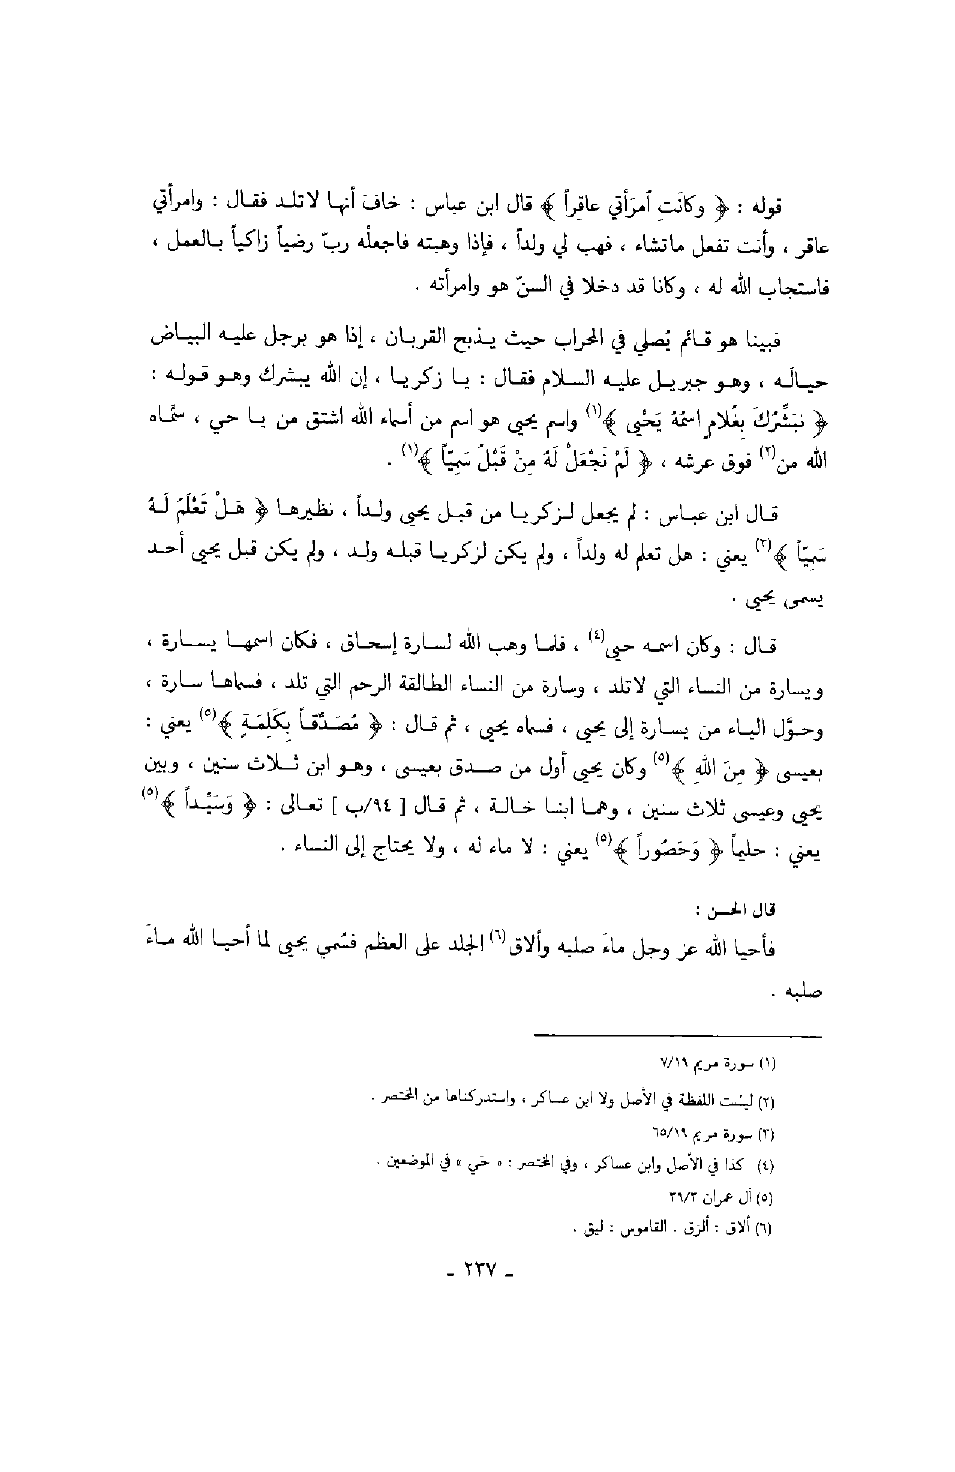 قوله : ﴿ وكَانَتِ ٱمرَأتي عاقِراً ﴾ قال ابن عباس : خافَ أنهـا لاتلـد فقـال : وامرأتي
عاقر ، وأنت تفعل ماتشاء ، فهب لي ولداً ، فإذا وهبته فاجعلْه ربّ رضيـاً زاكيـاً بـالعمل ،
فاستجاب الله له ، وكانا قد دخلا في السنّ هو وامرأته .
فبينا هو قـائم يُصلي في المحراب حيث يـذبح القربان ، إذا هو برجل عليـه البيـاض
حيـالَـه ، وهـو جبريـل عليـه السـلام فقـال : يـا زكريـا ، إن الله يبشرك وهـو قـولـه :
﴿ نُبَشِّرُكَ بِغُلامٍ اسْمُهُ يَحْيٰى ﴾(١) واسم يحيى هو اسم من أسماء الله اشتق من يـا حي ، سمّـاه
الله من(٢) فوق عرشه ، ﴿ لَمْ نَجْعَلْ لَهُ مِنْ قَبْلُ سَمِيّاً ﴾(١) .
قـال ابن عبـاس : لم يجعل لـزكريـا من قبـل يحيى ولـداً ، نظيرهـا ﴿ هَـلْ تَعْلَمُ لَـهُ
سَمِيّاً ﴾(٣) يعني : هل تعلم له ولداً ، ولم يكن لزكريـا قبلـه ولد ، ولم يكن قبل يحيى أحـد
يسمى يحيى .
قـال : وكان اسمـه حيى(٤) ، فلمـا وهب الله لسـارة إسحـاق ، فكان اسمهـا يسـارة ،
ويسارة من النسـاء التي لاتلد ، وسارة من النساء الطالقة الرحم التي تلد ، فسماهـا سـارة ،
وحـوَّل اليـاء من يسارة إلى يحيى ، فسماه يحيى ، ثم قـال : ﴿ مُصَدِّقـاً بِكَلِمَةٍ ﴾(٥) يعني :
بعيسى ﴿ مِنَ اللهِ ﴾(٥) وكان يحيى أول من صـدق بعيسى ، وهـو ابن ثـلاث سنين ، وبين
يحيى وعيسى ثلاث سنين ، وهما ابنـا خـالـة ، ثم قـال [ ٩٤/ب ] تعـالى : ﴿ وَسَيِّداً ﴾(٥)
يعني : حليماً ﴿ وَحَصُوراً ﴾(٥) يعني : لا ماء له ، ولا يحتاج إلى النساء .
قال الحسن :
فأحيا الله عز وجل ماءَ صلبه وألاق(٦) الجلد على العظم فسُمي يحيى لما أحيـا الله مـاءَ
صلبه .
(١) سورة مريم ٧/١٩
(٢) ليست اللفظة في الأصل ولا ابن عساكر ، واستدركناها من المختصر .
(٣) سورة مريم ٦٥/١٩
(٤) كذا في الأصل وابن عساكر ، وفي المختصر : « حَي » في الموضعين .
(٥) آل عمران ٣٩/٣
(٦) ألاق : ألزق . القاموس : ليق .
ـ ٢٣٧ ـ